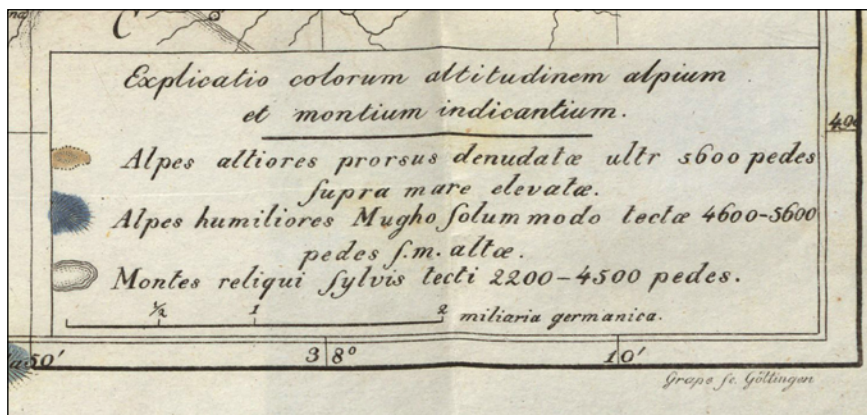 C
Explicatio colorum altitudinem alpium
et montium indicantium.
400
Alpes altiores prorsus denudatæ ultr 5600 pedes
ſupra mare elevatæ.
Alpes humiliores Mugho ſolummodo tectæ 4600-5600
pedes ſ.m. altæ.
Montes reliqui ſylvis tecti 2200-4500 pedes.
½ 1 2 miliaria germanica.
50' 38° 10'
Grape ſc. Göttingen